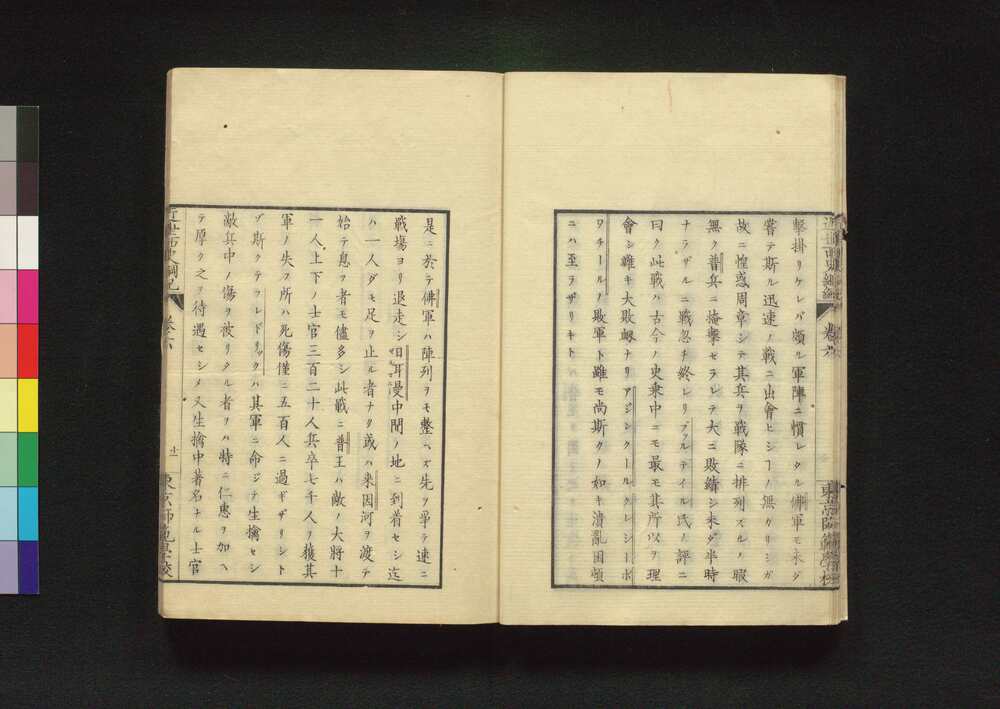 撃掛リケレバ頗ル軍陣ニ慣レタル佛軍モ未ダ
嘗テ斯ル迅速ノ戰ニ出會ヒシヿノ無グリシガ
故ニ惶惑周章シテ其兵ヲ戰隊ニ排列スルノ暇
無ク普兵ニ掩撃セラレテ大ニ敗績シ未ダ半時
ナラザルニ戰忽チ終レリヲルテイル氏ノ評ニ
曰ク此戰ハ古今ノ史乗中ニモ最モ其所以ヲ理
會シ難キ大敗衂ナリアジンクールクレシーポ
ワチールノ敗軍ト雖モ尚斯クノ如キ潰亂困頓
ニハ至ラザリキト
是ニ於テ佛軍ハ陣列ヲモ整ヘズ先ヲ爭テ速ニ
戰場ヨリ退走シ日耳曼中閒ノ地ニ到着セシ迄
ハ一人ダモ足ヲ止ル者ナク或ハ來因河ヲ渡テ
始テ息フ者モ儘多シ此戰ニ普王ハ敵ノ大將十
一人上下ノ士官三百二十人兵卒七千人ヲ獲其
軍ノ失フ所ハ死傷僅ニ五百人ニ過ギザリシト
ゾ斯クテフレドリックハ其軍ニ命ジテ生擒セシ
敵兵中ノ傷ヲ被リタル者ヲハ特ニ仁惠ヲ加ヘ
テ厚ク之ヲ待遇セシメ又生擒中著名ナル士官
卷六
十一
東京師範學校